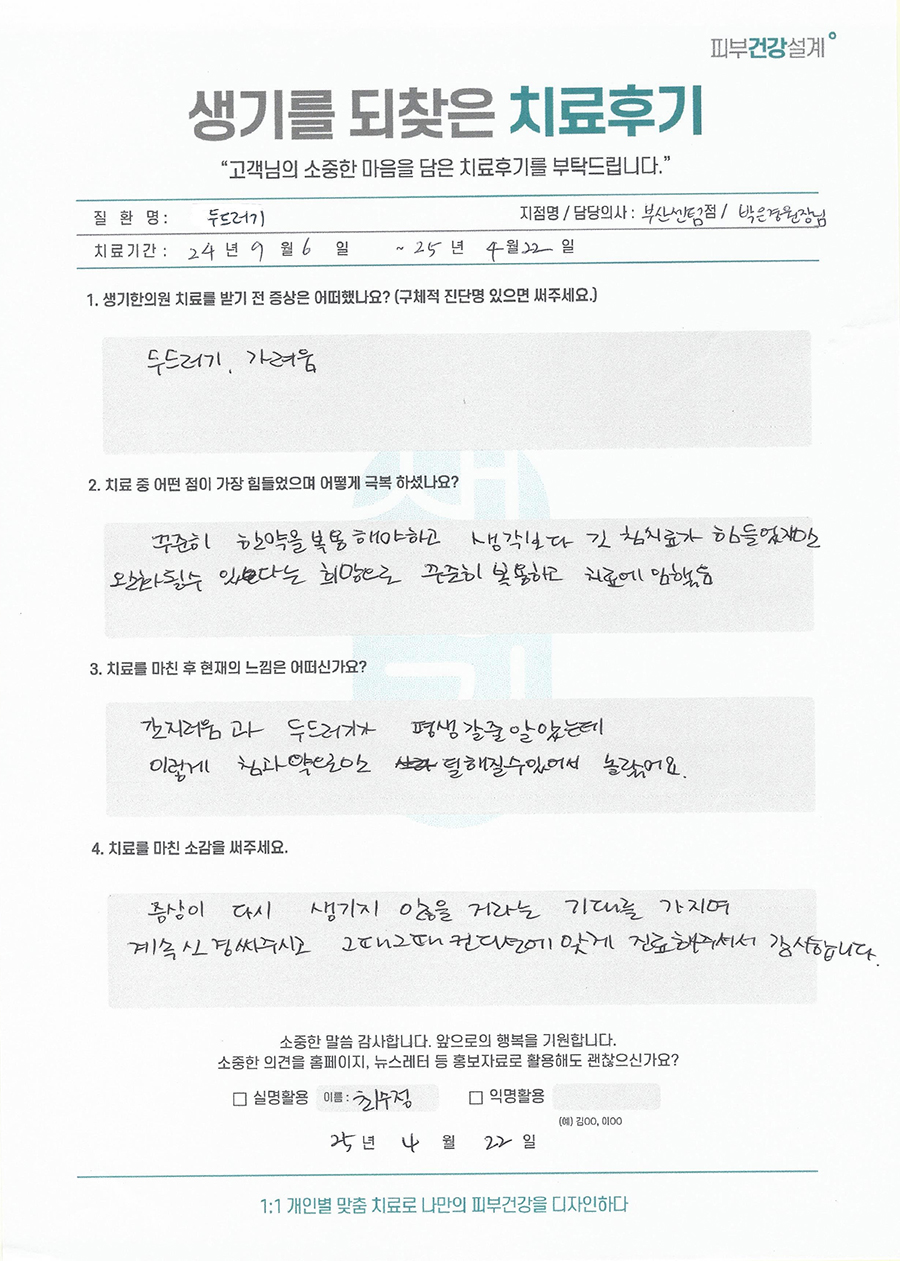 피부건강설계
생기를 되찾은 치료후기
“고객님의 소중한 마음을 담은 치료후기를 부탁드립니다.”
질 환 명 : 두드러기 지점명 / 담당의사 : 부산센텀점 / 박은경원장님
치료기간 : 24 년 9 월 6 일 ~ 25 년 4 월 22 일
1. 생기한의원 치료를 받기 전 증상은 어떠했나요? (구체적 진단명 있으면 써주세요.)
두드러기, 가려움
2. 치료 중 어떤 점이 가장 힘들었으며 어떻게 극복 하셨나요?
꾸준히 한약을 복용해야하고 생각보다 긴 침치료가 힘들었지만
완화될수 있다는 희망으로 꾸준히 복용하고 치료에 임했음
3. 치료를 마친 후 현재의 느낌은 어떠신가요?
간지러움과 두드러기가 평생갈줄알았는데
이렇게 침과약으로만 덜해질수있어서 놀랐어요.
4. 치료를 마친 소감을 써주세요.
증상이 다시 생기지 않을 거라는 기대를 가지며
계속신경써주시고 그때그때 컨디션에 맞게 진료해주셔서 감사합니다.
소중한 말씀 감사합니다. 앞으로의 행복을 기원합니다.
소중한 의견을 홈페이지, 뉴스레터 등 홍보자료로 활용해도 괜찮으신가요?
□ 실명활용 이름 : 최수정 □ 익명활용
(예) 김OO, 이OO
25 년 4 월 22 일
1:1 개인별 맞춤 치료로 나만의 피부건강을 디자인하다